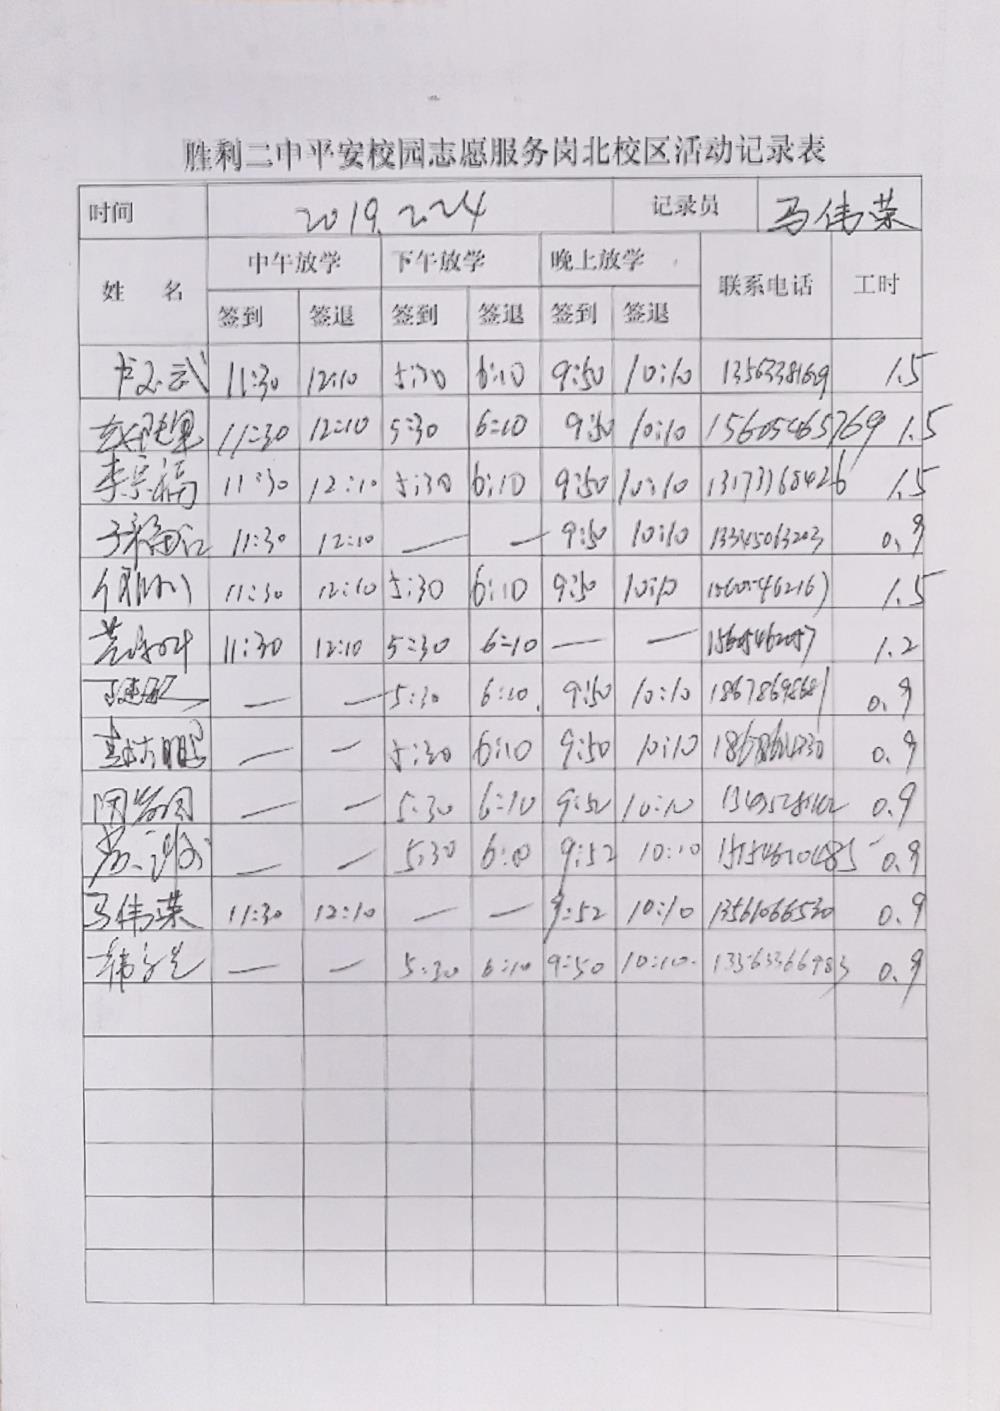 胜利二中平安校园志愿服务岗北校区活动记录表
时间 2019.2.24 记录员 马伟荣
姓 名 中午放学 下午放学 晚上放学 联系电话 工时
签到 签退 签到 签退 签到 签退
11:30 12:10 5:30 6:10 9:50 10:10 1.5
11:30 12:10 5:30 6:10 9:50 10:10 15605465769 1.5
李宗福 11:30 12:10 5:30 6:10 9:50 10:10 13173368426 1.5
11:30 12:10 — — 9:50 10:10 13345063203 0.9
11:30 12:10 5:30 6:10 9:50 10:10 15605462167 1.5
11:30 12:10 5:30 6:10 — — 15605462057 1.2
— — 5:30 6:10 9:50 10:10 18678698681 0.9
— — 5:30 6:10 9:50 10:10 0.9
— — 5:30 6:10 9:50 10:10 0.9
— — 5:30 6:10 9:52 10:10 0.9
马伟荣 11:30 12:10 — — 9:52 10:10 13561066530 0.9
— — 5:30 6:10 9:50 10:10 13563366983 0.9